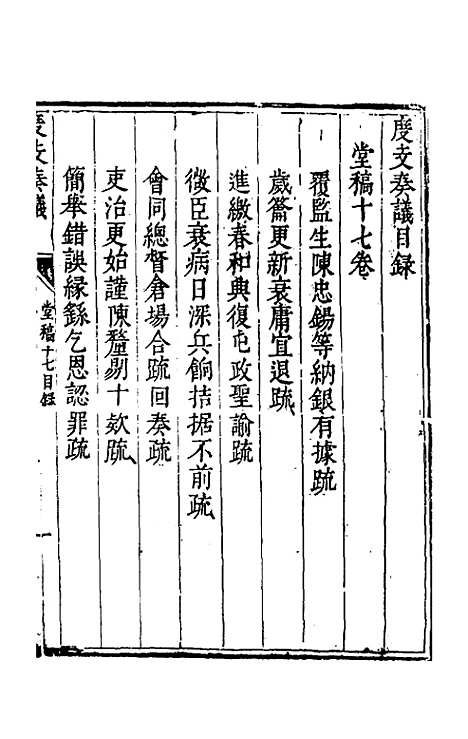 度支奏議目録
堂稿十七卷
覆監生陳忠錫等納銀有據疏
歲籥更新衰庸宜退疏
進繳春和興復屯政聖諭疏
微臣衰病日深兵餉拮据不前疏
會同總督倉場合疏回奏疏
吏治更始謹陳釐剔十欵疏
簡舉錯誤緣繇乞恩認罪疏
度支奏議
堂稿十七目録
一